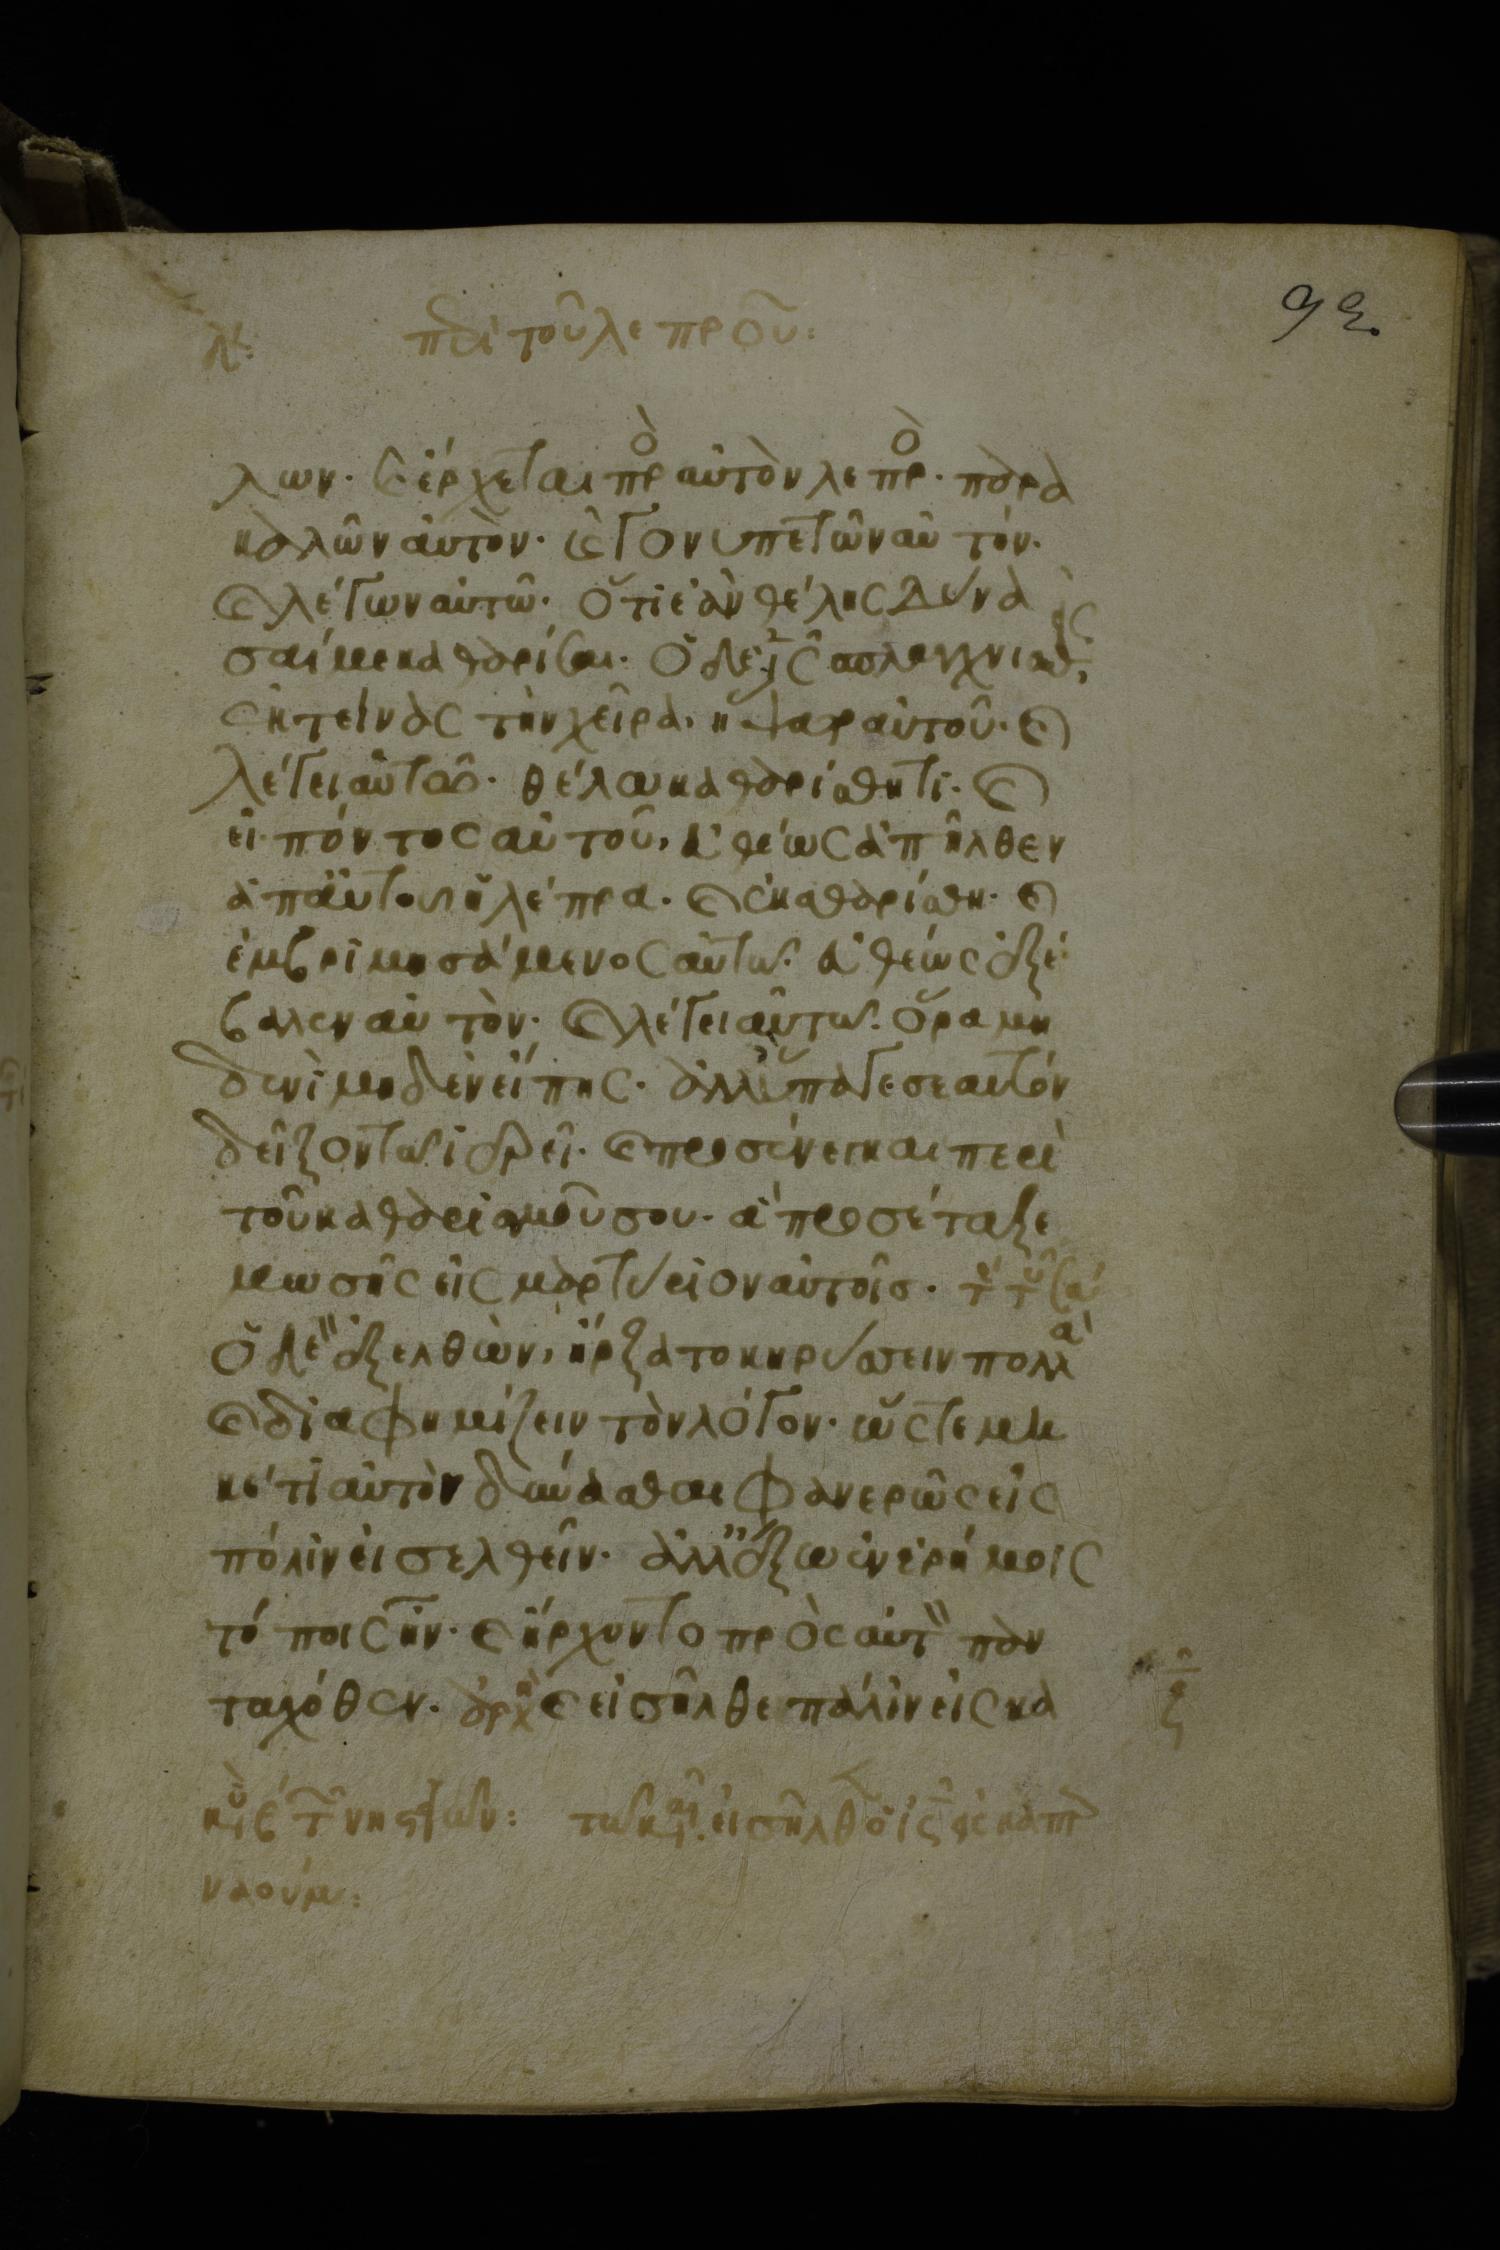 δ΄: περὶ τοῦ λεπροῦ:
92.
λων. καὶ ἔρχεται πρὸ αὐτὸν λεπρὸ. παρα
καλῶν αὐτὸν. καὶ γονυπετῶν αὐτόν.
καὶ λέγων αὐτῶ. ὅτι ἐὰν θέλης δύνα
σαί με καθαρίσαι. ὁ δὲ ις σπλαγχνισθεὶς,
ἐκτείνας τὴν χεῖρα, ἥψατο αὐτοῦ. καὶ
λέγει αὐτῶ. θέλω καθαρίσθητι. καὶ
εἰπόντος αὐτοῦ, εὐθέως ἀπῆλθεν
ἀπ αὐτοῦ ἡ λέπρα. καὶ ἐκαθαρίσθη. καὶ
ἐμβριμησάμενος αὐτῶ. εὐθέως ἐξέ
βαλεν αὐτὸν. καὶ λέγει αὐτῶ. ὅρα μη
δενὶ μηδὲν εἴπης. ἀλλ ὕπαγε σεαυτόν
δεῖξον τῶ ἱερεῖ. καὶ προσένεγκαι περὶ
τοῦ καθαρισμοῦ σου. ἃ προσέταξε
μωσῆς εἰς μαρτύριον αὐτοῖς.
ὁ δὲ ἐξελθὼν, ἤρξατο κηρύσσειν πολλὰ
καὶ διαφημίζειν τὸν λόγον. ὥστε μη
κέτι αὐτὸν δύνασθαι φανερῶς εἰς
πόλιν εἰσελθεῖν. ἀλλ ἔξω ἐν ἐρήμοις
τόποις ἦν. καὶ ἤρχοντο πρὸς αὐτ πὰν
ταχόθεν. ἀρχ καὶ εἰσῆλθε πάλιν εἰς κα
κυ β τ νηστειῶν: τῶ κ. εἰσῆλθ ὁ ις εἰς καπερ
ναούμ: